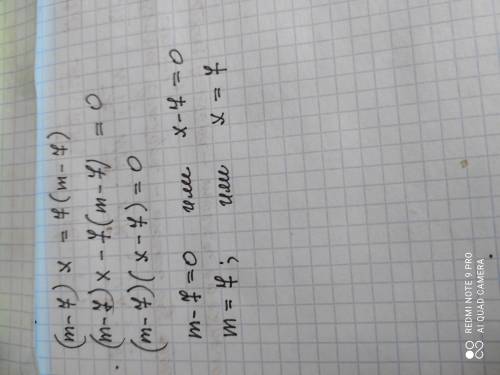 (m-7) x = 7(m-7)
(m-7) x - 7(m-7) = 0
(m-7)(x-7) = 0
m-7=0 или x-7=0
m=7; или x=7
REDMI NOTE 9 PRO
AI QUAD CAMERA